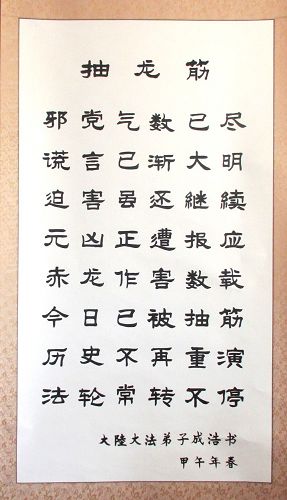 抽龙筋
邪党气数已尽
谎言已渐大明
迫害虽还继续
元凶正遭报应
赤龙作害数载
今日已被抽筋
历史不再重演
法轮常转不停
大陸大法弟子成浩书
甲午年春